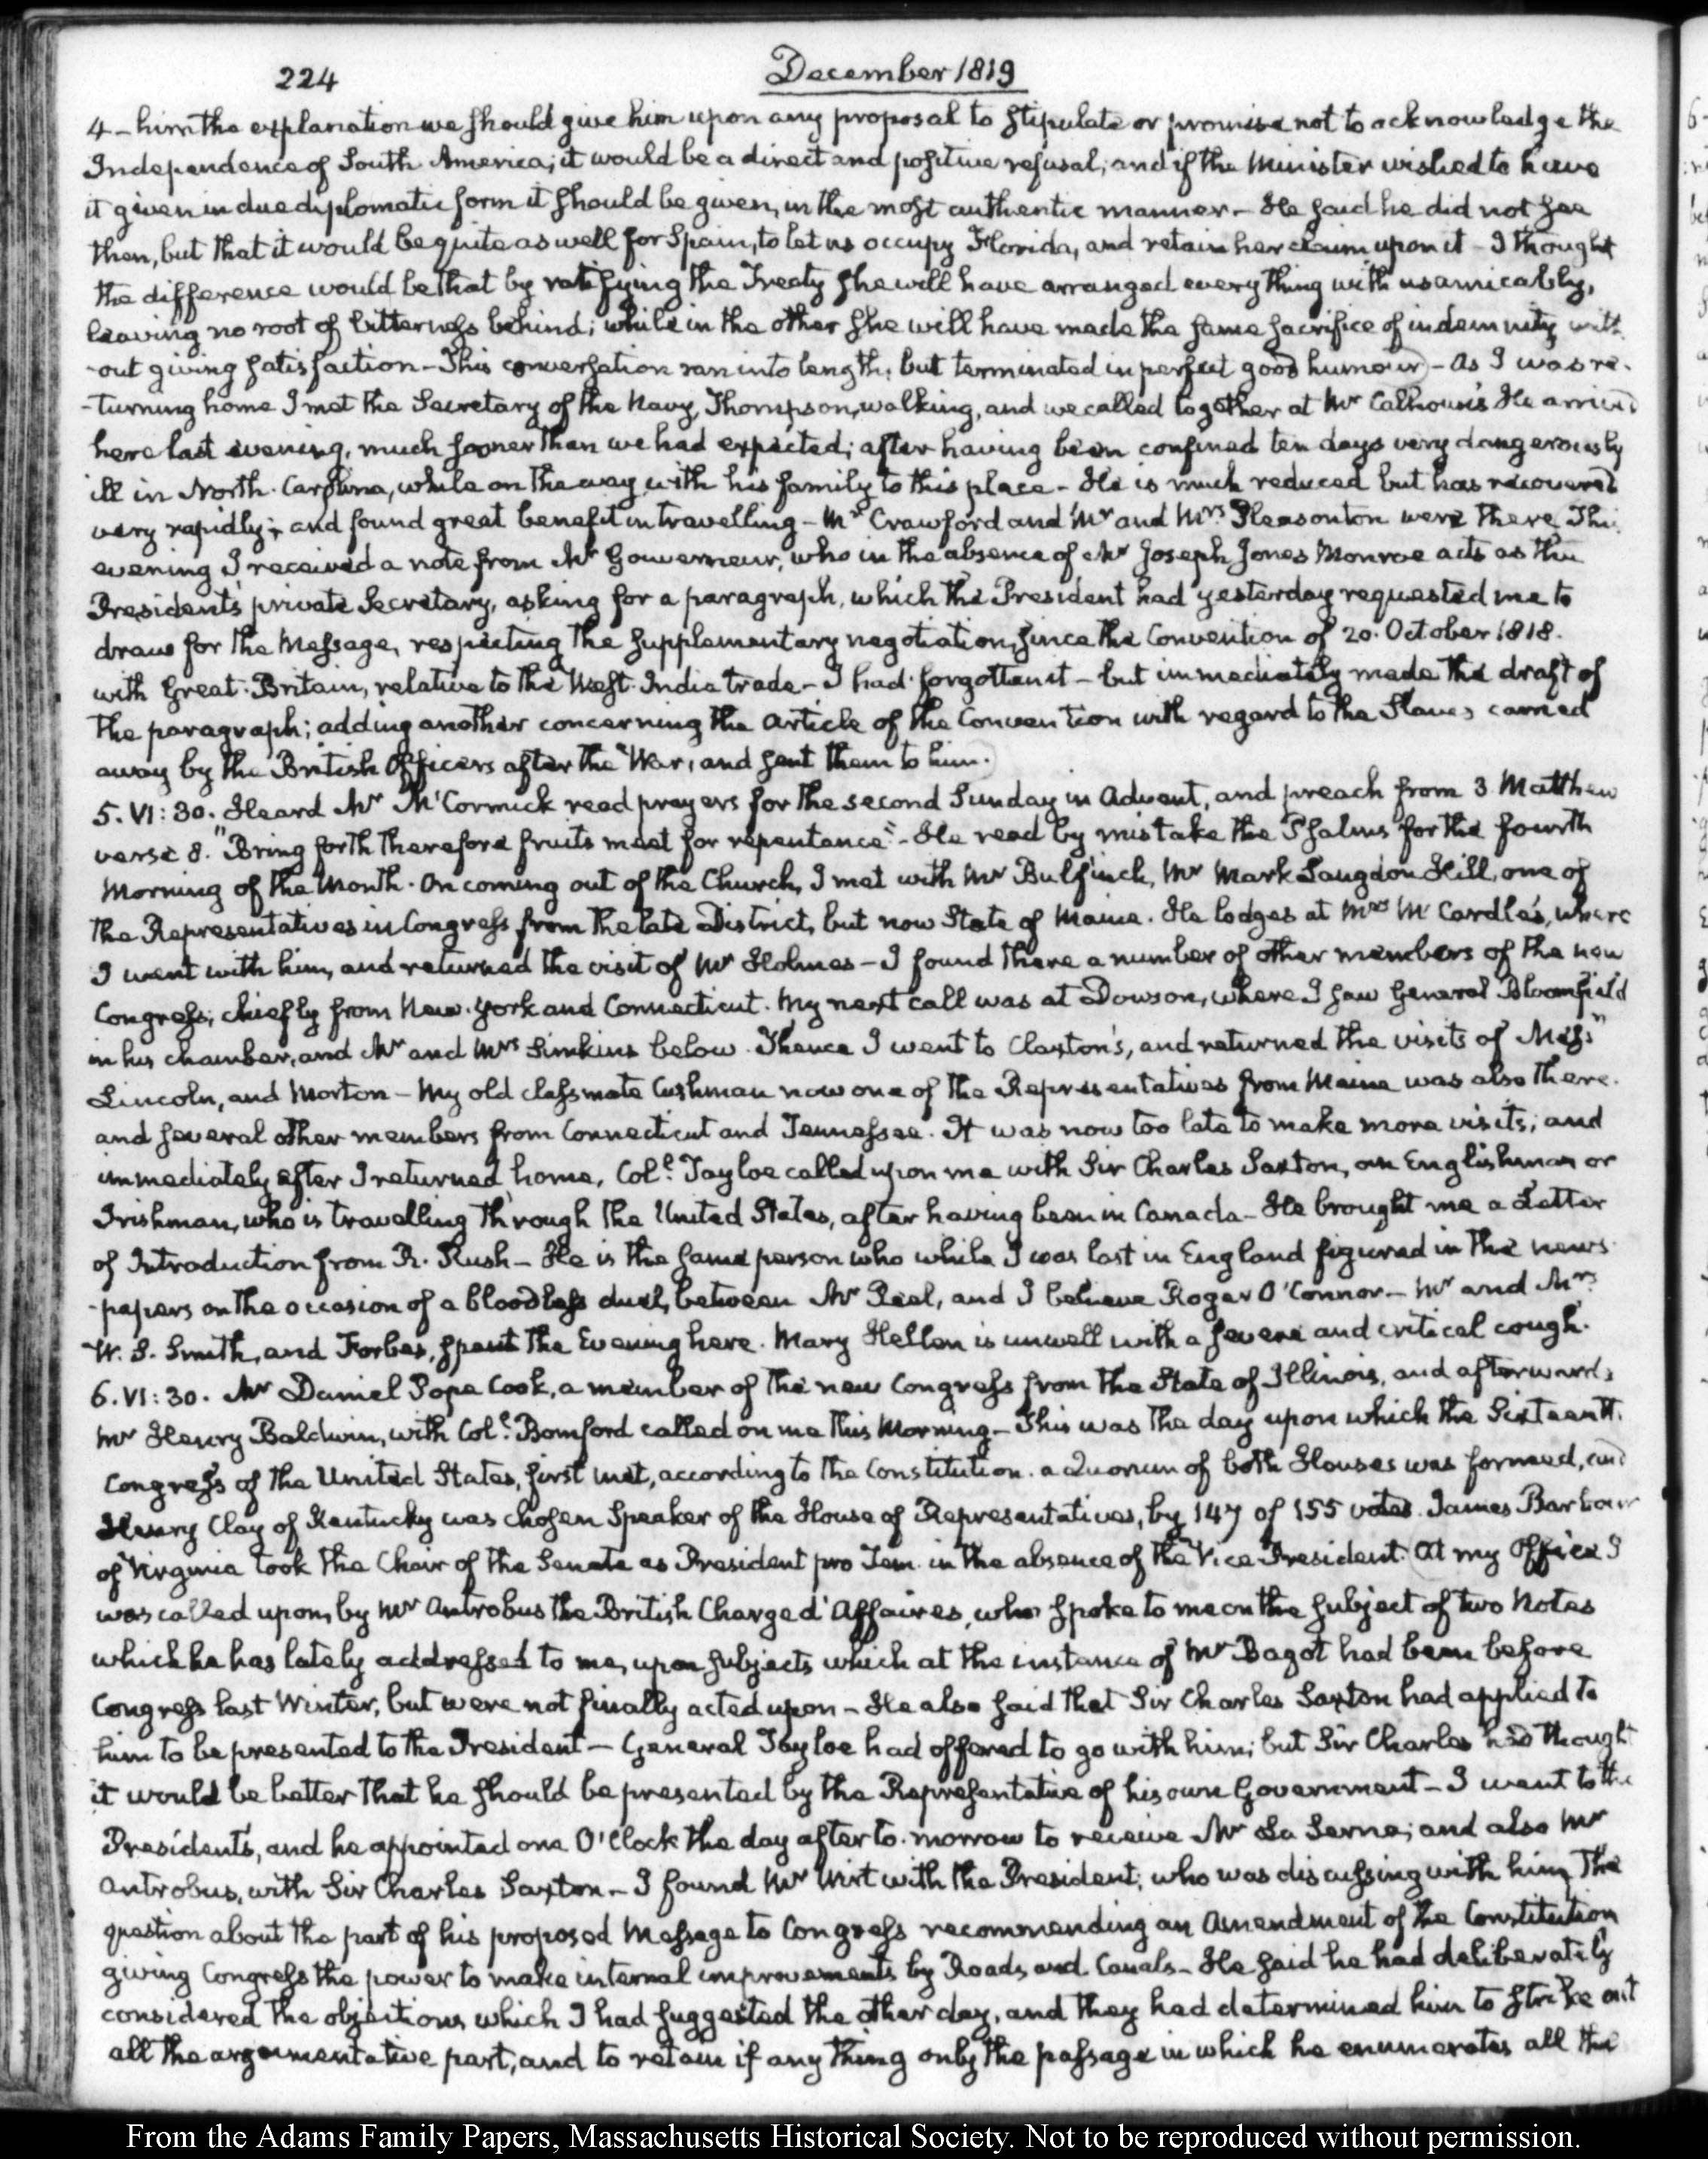 224
December 1819
4 - him the explanation we should give him upon any proposal to stipulate or promise not to acknowledge the
Independence of South America; it would be a direct and positive refusal; and if the Minister wished to have
it given in due diplomatic form it should be given, in the most authentic manner - He said he did not see
then, but that it would be quite as well for Spain, to let us occupy Florida, and retain her claim upon it - I thought
the difference would be that by ratifying the Treaty she will have arranged every thing with us amicably,
leaving no root of bitterness behind; while in the other she will have made the same sacrifice of indemnity with
-out giving satisfaction - This conversation ran into length; but terminated in perfect good humour - As I was re-
-turning home I met the Secretary of the Navy, Thompson, walking, and we called together at Mr Calhoun's He arrived
here last evening, much sooner than we had expected; after having been confined ten days very dangerously
ill in North-Carolina, while on the way with his family to this place - He is much reduced but has recovered
very rapidly; and found great benefit in travelling - Mr Crawford and Mr and Mrs Pleasonton were there This
evening I received a note from Mr Gouverneur, who in the absence of Mr Joseph Jones Monroe acts as the
President's private Secretary, asking for a paragraph, which the President had yesterday requested me to
draw for the Message, respecting the supplementary negotiation, since the Convention of 20. October 1818.
with Great-Britain, relative to the West-India trade - I had forgotten it - but immediately made the draft of
the paragraph; adding another concerning the Article of the Convention with regard to the Slaves carried
away by the British Officers after the War, and sent them to him.
5. VI:30. Heard Mr McCormick read prayers for the second Sunday in Advent, and preach from 3 Matthew
verse 8. "Bring forth therefore fruits meet for repentance" - He read by mistake the Psalms for the fourth
Morning of the Month. On coming out of the Church, I met with Mr Bulfinch, Mr Mark Langdon Hill, one of
the Representatives in Congress from the late District, but now State of Maine. He lodges at Mrs McCardle's, where
I went with him, and returned the visit of Mr Holmes - I found there a number of other members of the new
Congress; chiefly from New-York and Connecticut. My next call was at Dowson, where I saw General Bloomfield
in his chamber, and Mr and Mrs Simkins below. Thence I went to Claxton's, and returned the visits of Messrs
Lincoln, and Morton - My old classmate Cushman now one of the Representatives from Maine was also there.
and several other members from Connecticut and Tennessee. It was now too late to make more visits; and
immediately after I returned home, Coll. Tayloe called upon me with Sir Charles Saxton, an Englishman or
Irishman, who is travelling through the United States, after having been in Canada - He brought me a Letter
of Introduction from R. Rush - He is the same person who while I was last in England figured in the news-
-papers on the occasion of a bloodless duel, between Mr Peel, and I believe Roger O'Connor - Mr and Mrs
W. S. Smith, and Forbes, spent the Evening here. Mary Hellen is unwell with a severe and critical cough.
6. VI:30. Mr Daniel Pope Cook, a member of the new Congress from the State of Illinois, and afterwards
Mr Henry Baldwin, with Coll. Bomford called on me this Morning - This was the day upon which the Sixteenth
Congress of the United States, first met, according to the Constitution. a Quorum of both Houses was formed, and
Henry Clay of Kentucky was chosen Speaker of the House of Representatives, by 147 of 155 votes. James Barbour
of Virginia took the Chair of the Senate as President pro Tem. in the absence of the Vice President. At my Office I
was called upon, by Mr Antrobus the British Chargé d'Affaires, who spoke to me on the subject of two Notes
which he has lately addressed to me, upon subjects which at the instance of Mr Bagot had been before
Congress last Winter, but were not finally acted upon - He also said that Sir Charles Saxton had applied to
him to be presented to the President - General Tayloe had offered to go with him; but Sir Charles had thought
it would be better that he should be presented by the Representative of his own Government - I went to the
President's, and he appointed one O'Clock the day after to-morrow to receive Mr La Serna; and also Mr
Antrobus, with Sir Charles Saxton - I found Mr Wirt with the President; who was discussing with him, the
question about the part of his proposed Message to Congress recommending an Amendment of the Constitution
giving Congress the power to make internal improvements by Roads and Canals - He said he had deliberately
considered the objections which I had suggested the other day, and they had determined him to strike out
all the argumentative part, and to retain if any thing only the passage in which he enumerates all the
From the Adams Family Papers, Massachusetts Historical Society. Not to be reproduced without permission.